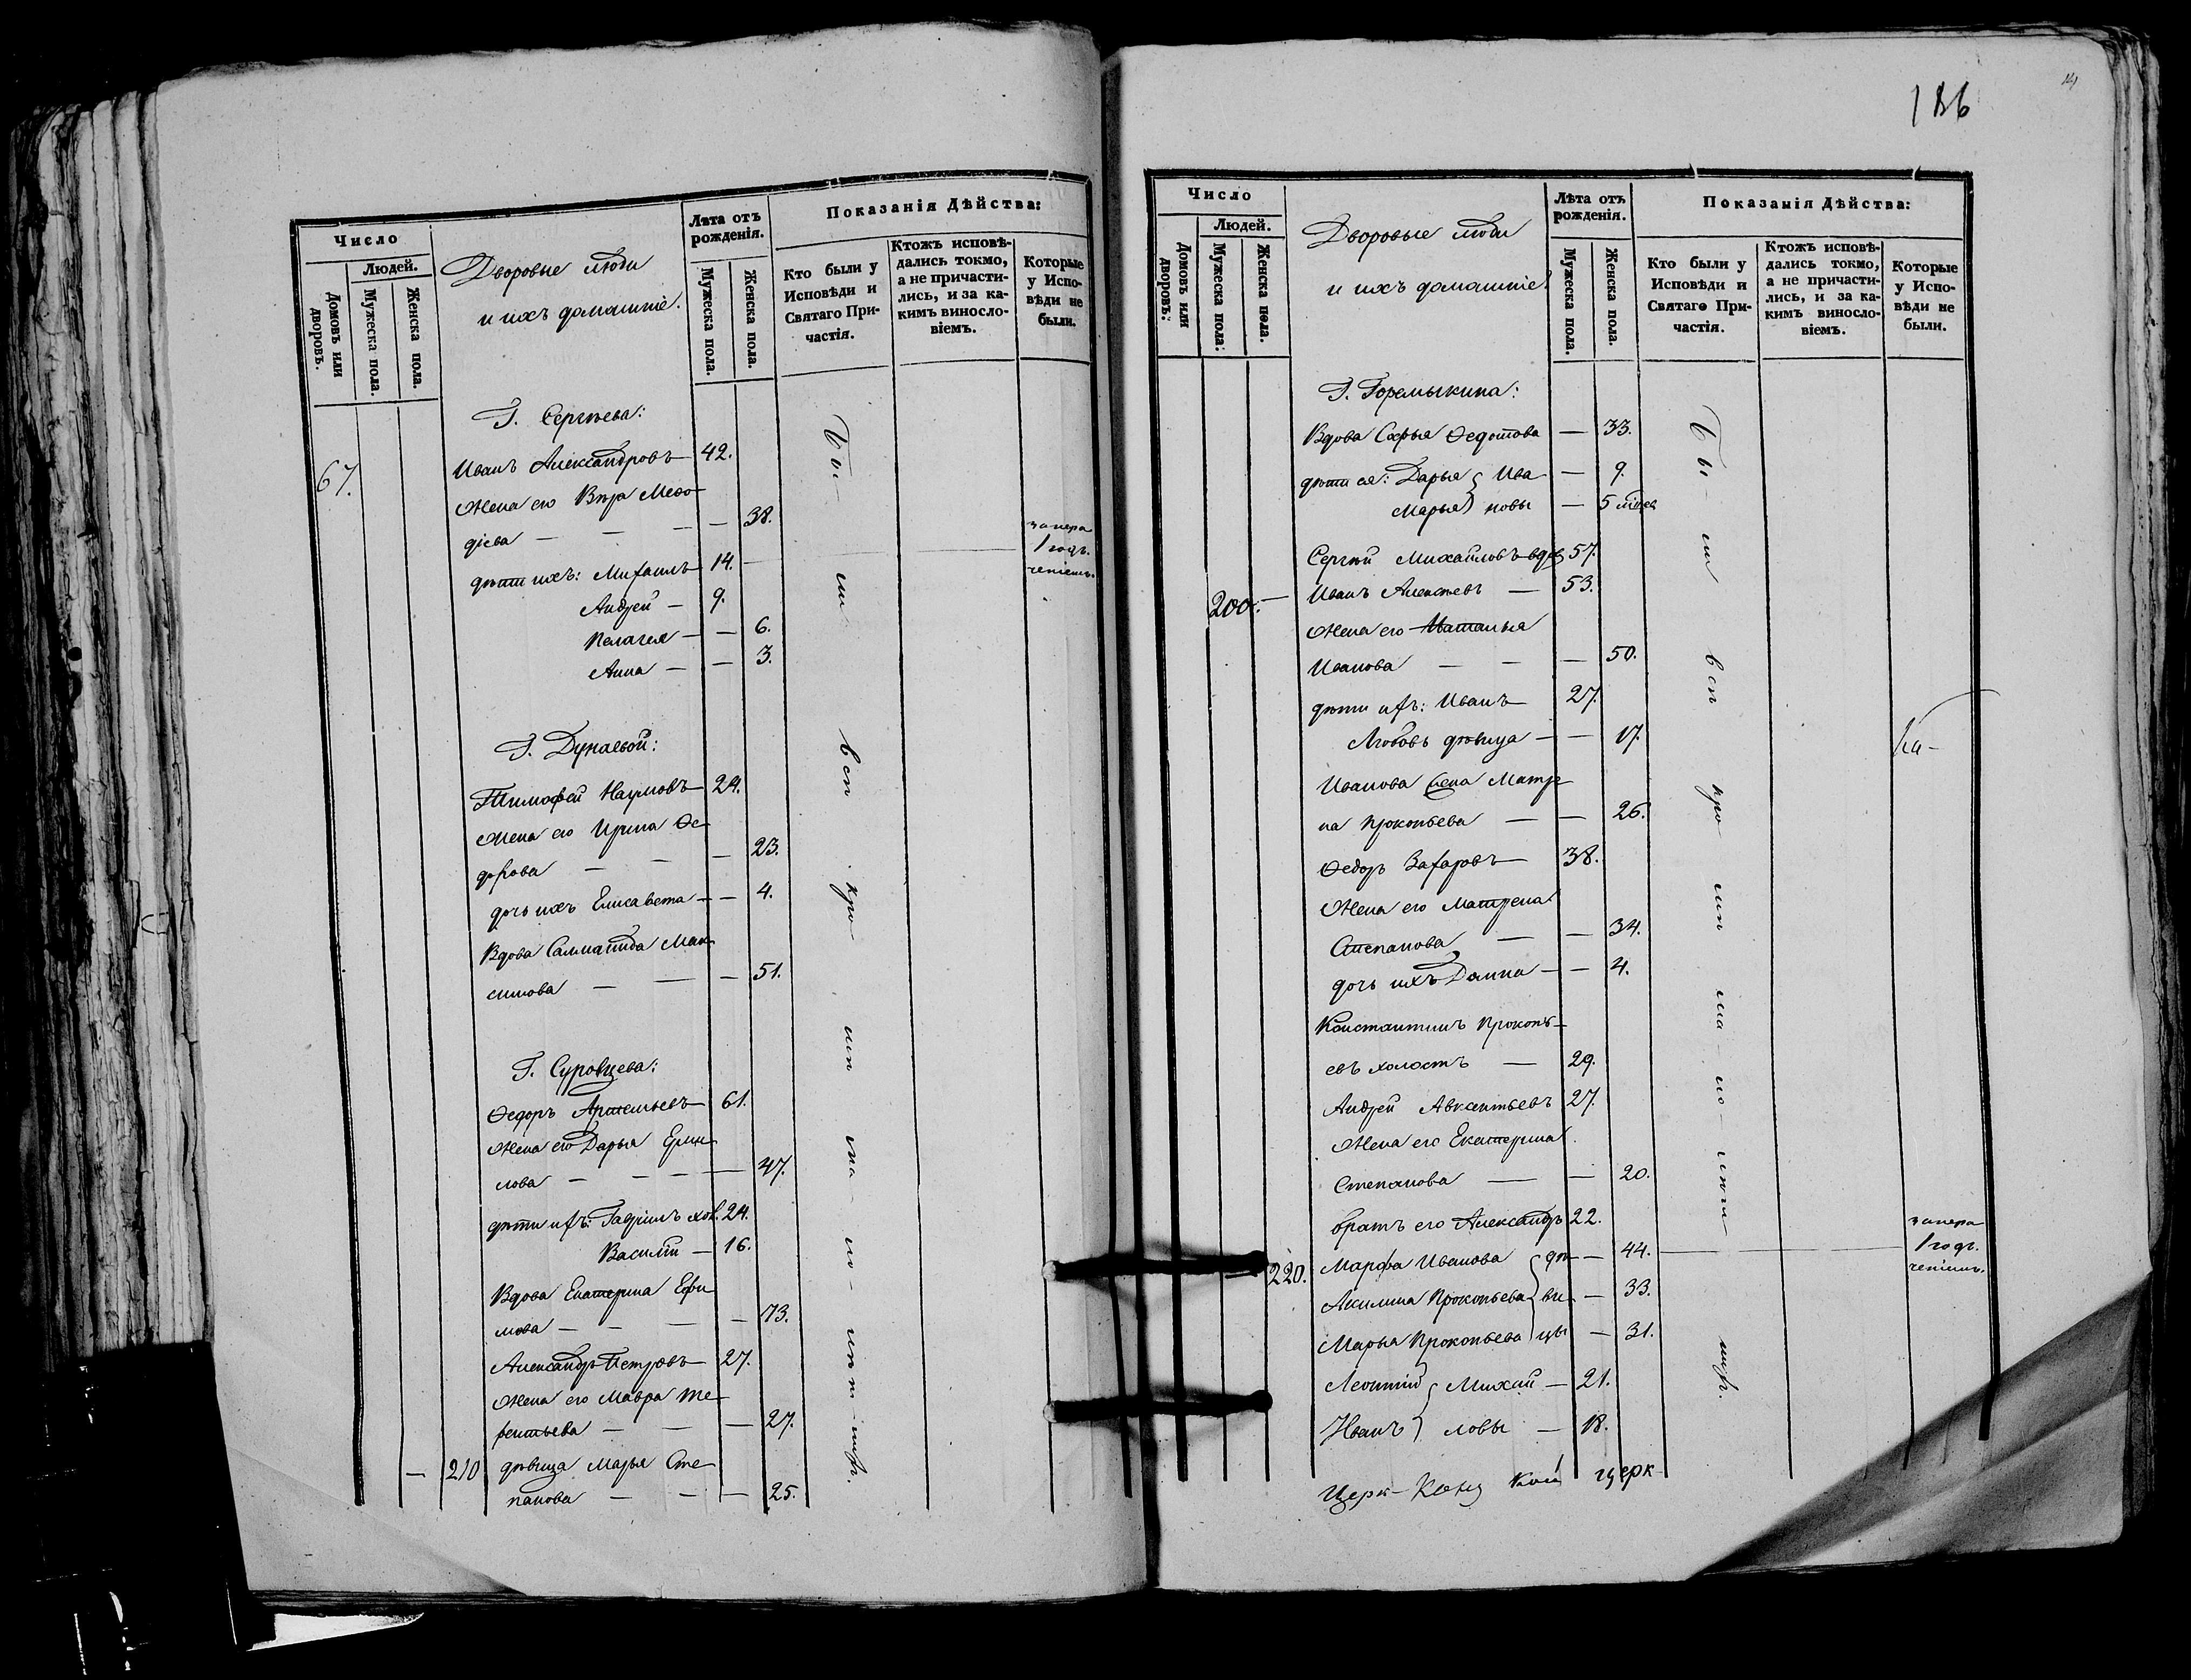 Число
Людей.
Домовъ или дворовъ.
Мужеска пола.
Женска пола.
Дворовые люди
и ихъ домашніе.
Лѣта отъ рожденія.
Мужеска пола.
Женска пола.
Показанія Дѣйства:
Кто были у Исповѣди и Святаго При-частія.
Ктожъ исповѣ-дались токмо, а не причасти-лись, и за ка-кимъ винословіемъ.
Которые у Испо-вѣди не были.
Г. Сергѣева:
67. Иванъ Александровъ 42.
Жена его Вѣра Меѳо-
діева — — — 38.
дѣти ихъ: Михаилъ 14. —
Андрей — 9.
Пелагея — — 6.
Анна — — 3.
Г. Дунаевой:
Тимофей Наумовъ 24.
Жена его Ирина Ѳе-
дорова — — — 23.
дочь ихъ Елисавета — — 4.
Вдова Саломанида Мак-
симова — — — 51.
Г. Суровцева:
Ѳедоръ Артемьевъ 61.
Жена его Дарья Ермо-
лова — — — 47.
дѣти ихъ: Гавріилъ хол. 24.
Василій — 16.
Вдова Екатерина Ефи-
мова — — — 73.
Александръ Петровъ 27.
Жена его Мавра Те-
рентьева — — — 27.
— 210 дѣвица Марья Сте-
панова — — — 25.
Бы-
ли
всѣ
кро-
мѣ
ма-
ло-
лѣт-
186
Число
Людей.
Домовъ или дворовъ.
Мужеска пола.
Женска пола.
Дворовые люди
и ихъ домашніе.
Лѣта отъ рожденія.
Мужеска пола.
Женска пола.
Показанія Дѣйства:
Кто были у Исповѣди и Святаго При-частія.
Ктожъ исповѣ-дались токмо, а не причасти-лись, и за ка-кимъ винословіемъ.
Которые у Испо-вѣди не были.
Г. Горемыкина:
Вдова Софья Ѳедотова — 33.
дѣти ея: Дарья } Ива — 9.
Марья } новы — 5
Сергѣй Михайловъ вдов. 57.
200. — Иванъ Алексѣевъ — 53.
Жена его Наталья
Иванова — — — 50.
дѣти ихъ: Иванъ 27.
Любовь дѣвица — — 17.
Иванова жена Матре-
на Прокопьева — — 26.
Ѳедоръ Захаровъ 38.
Жена его Матрена
Степанова — — 34.
дочь ихъ Домна — — 4.
Константинъ Прокопь-
евъ холостъ — 29.
Андрей Авксентьевъ 27.
Жена его Екатерина
Степанова — — 20.
братъ его Александръ 22.
— 220. Марфа Иванова } дѣ — 44.
Акилина Прокопьева } ви — 33.
Марья Прокопьева } цы — 31.
Леонтій } Михай — 21.
Иванъ } ловы — 18.
Бы-
ли
всѣ
кро
мѣ
ма-
ло-